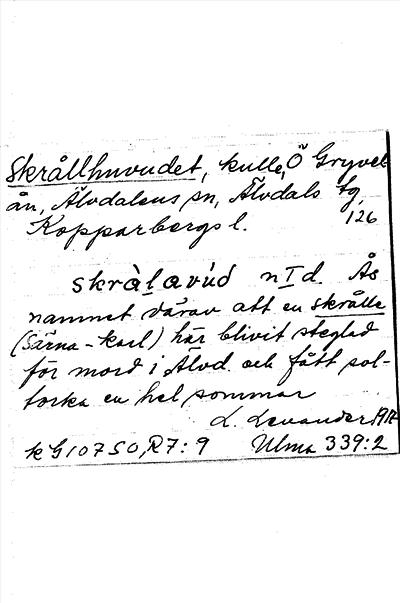 Skrållhuvudet, kulle, Ö Gryvel
ån, Älvdalens sn, Älvdals tg,
Kopparbergs l. 126
skràl̠avúd n I d. Ås
namnet därav att en skrålle
(Särna-karl) här blivit steglad
för mord i Älvd. och fått sol-
torka en hel sommar
L. Levander 1917
KG 107 SO, R7:9 Ulma 339:2